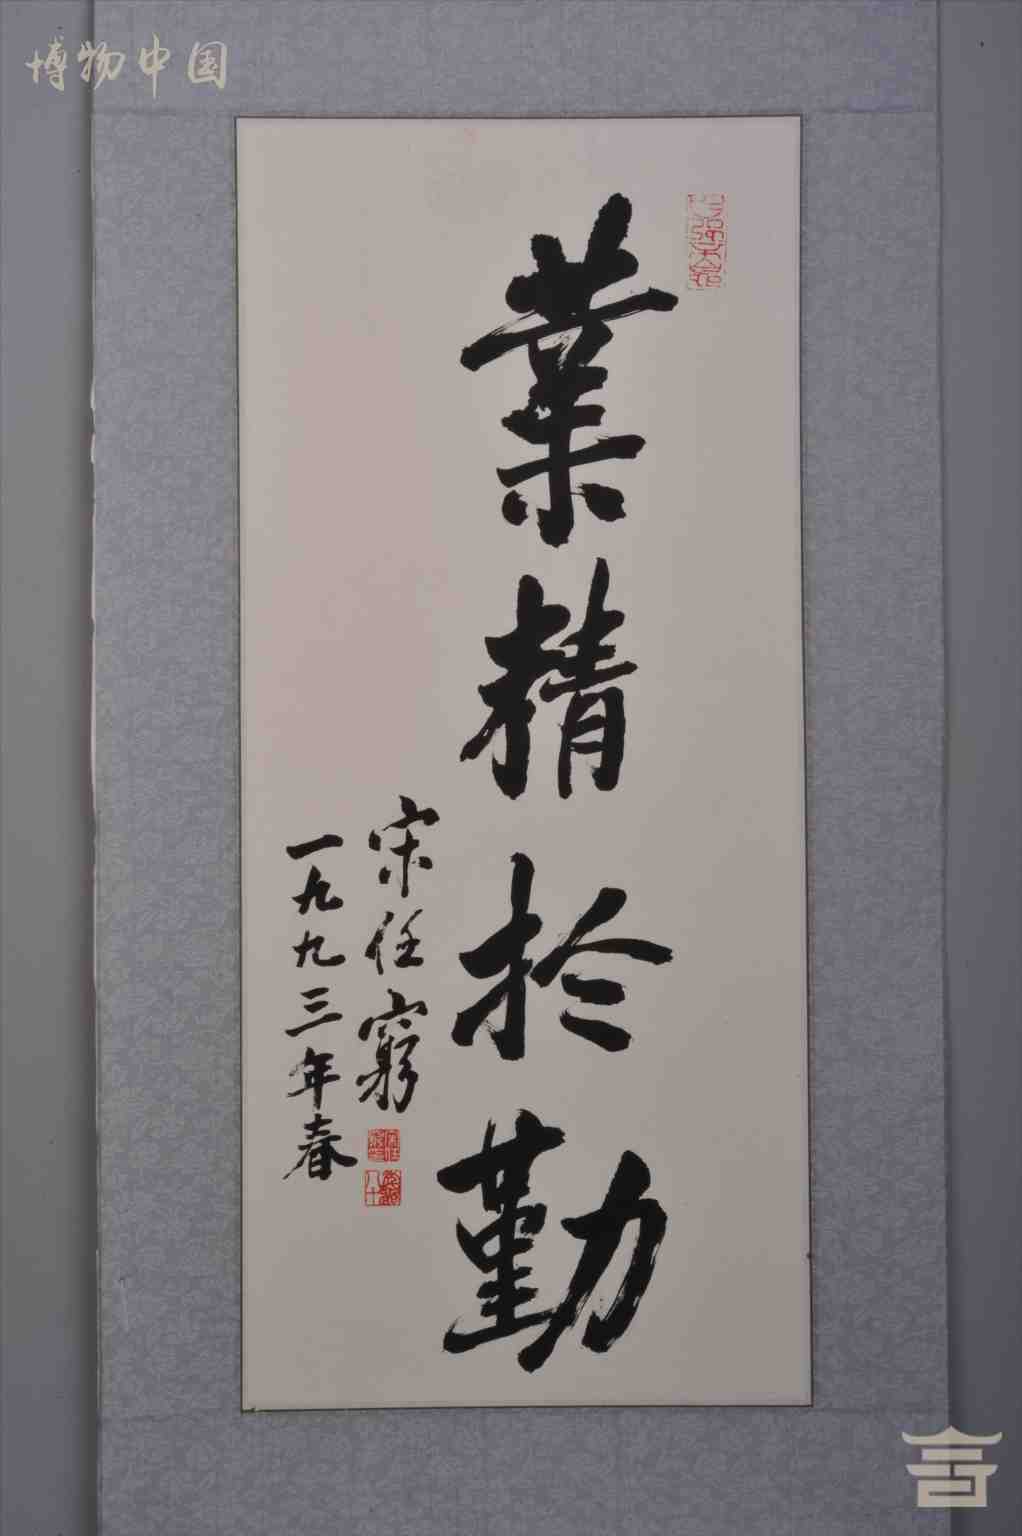 博物中国
業精於勤
宋任窮
一九九三年春